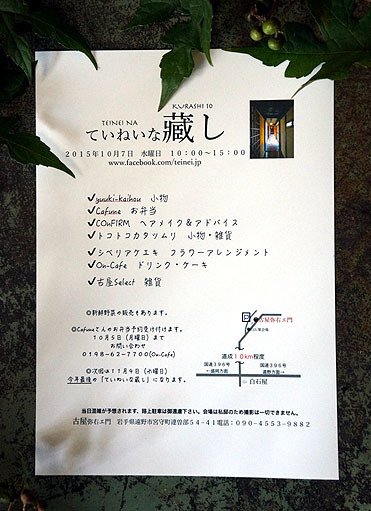 KURASHI 10
TEINEI NA
ていねいな藏し
2015年10月7日 水曜日 10:00～15:00
www.facebook.com/teinei.jp
✓yuuki-kaihou 小物
✓Cafune お弁当
✓COnFIRM ヘアメイク&アドバイス
✓トコトコカタツムリ 小物・雑貨
✓シベリアケエキ フラワーアレンジメント
✓On-Cafe ドリンク・ケーキ
✓古屋Select 雑貨
◎新鮮野菜の販売もあります。
◎Cafuneさんのお弁当予約受け付けます。
10月5日(月曜日)まで
お問い合わせ
0198-62-7700(On-Cafe)
◎次回は11月9日(水曜日)
今年最後の「ていねいな藏し」になります。
P
古屋弥右エ門
道成10km程度
国道396号 国道396号
←盛岡方面 遠野方面→
白石屋
当日混雑が予想されます、路上駐車は御遠慮下さい。会場は私邸のため撮影は一切できません。
古屋弥右エ門 岩手県遠野市宮守町達曽部54-41電話:090-4553-9882